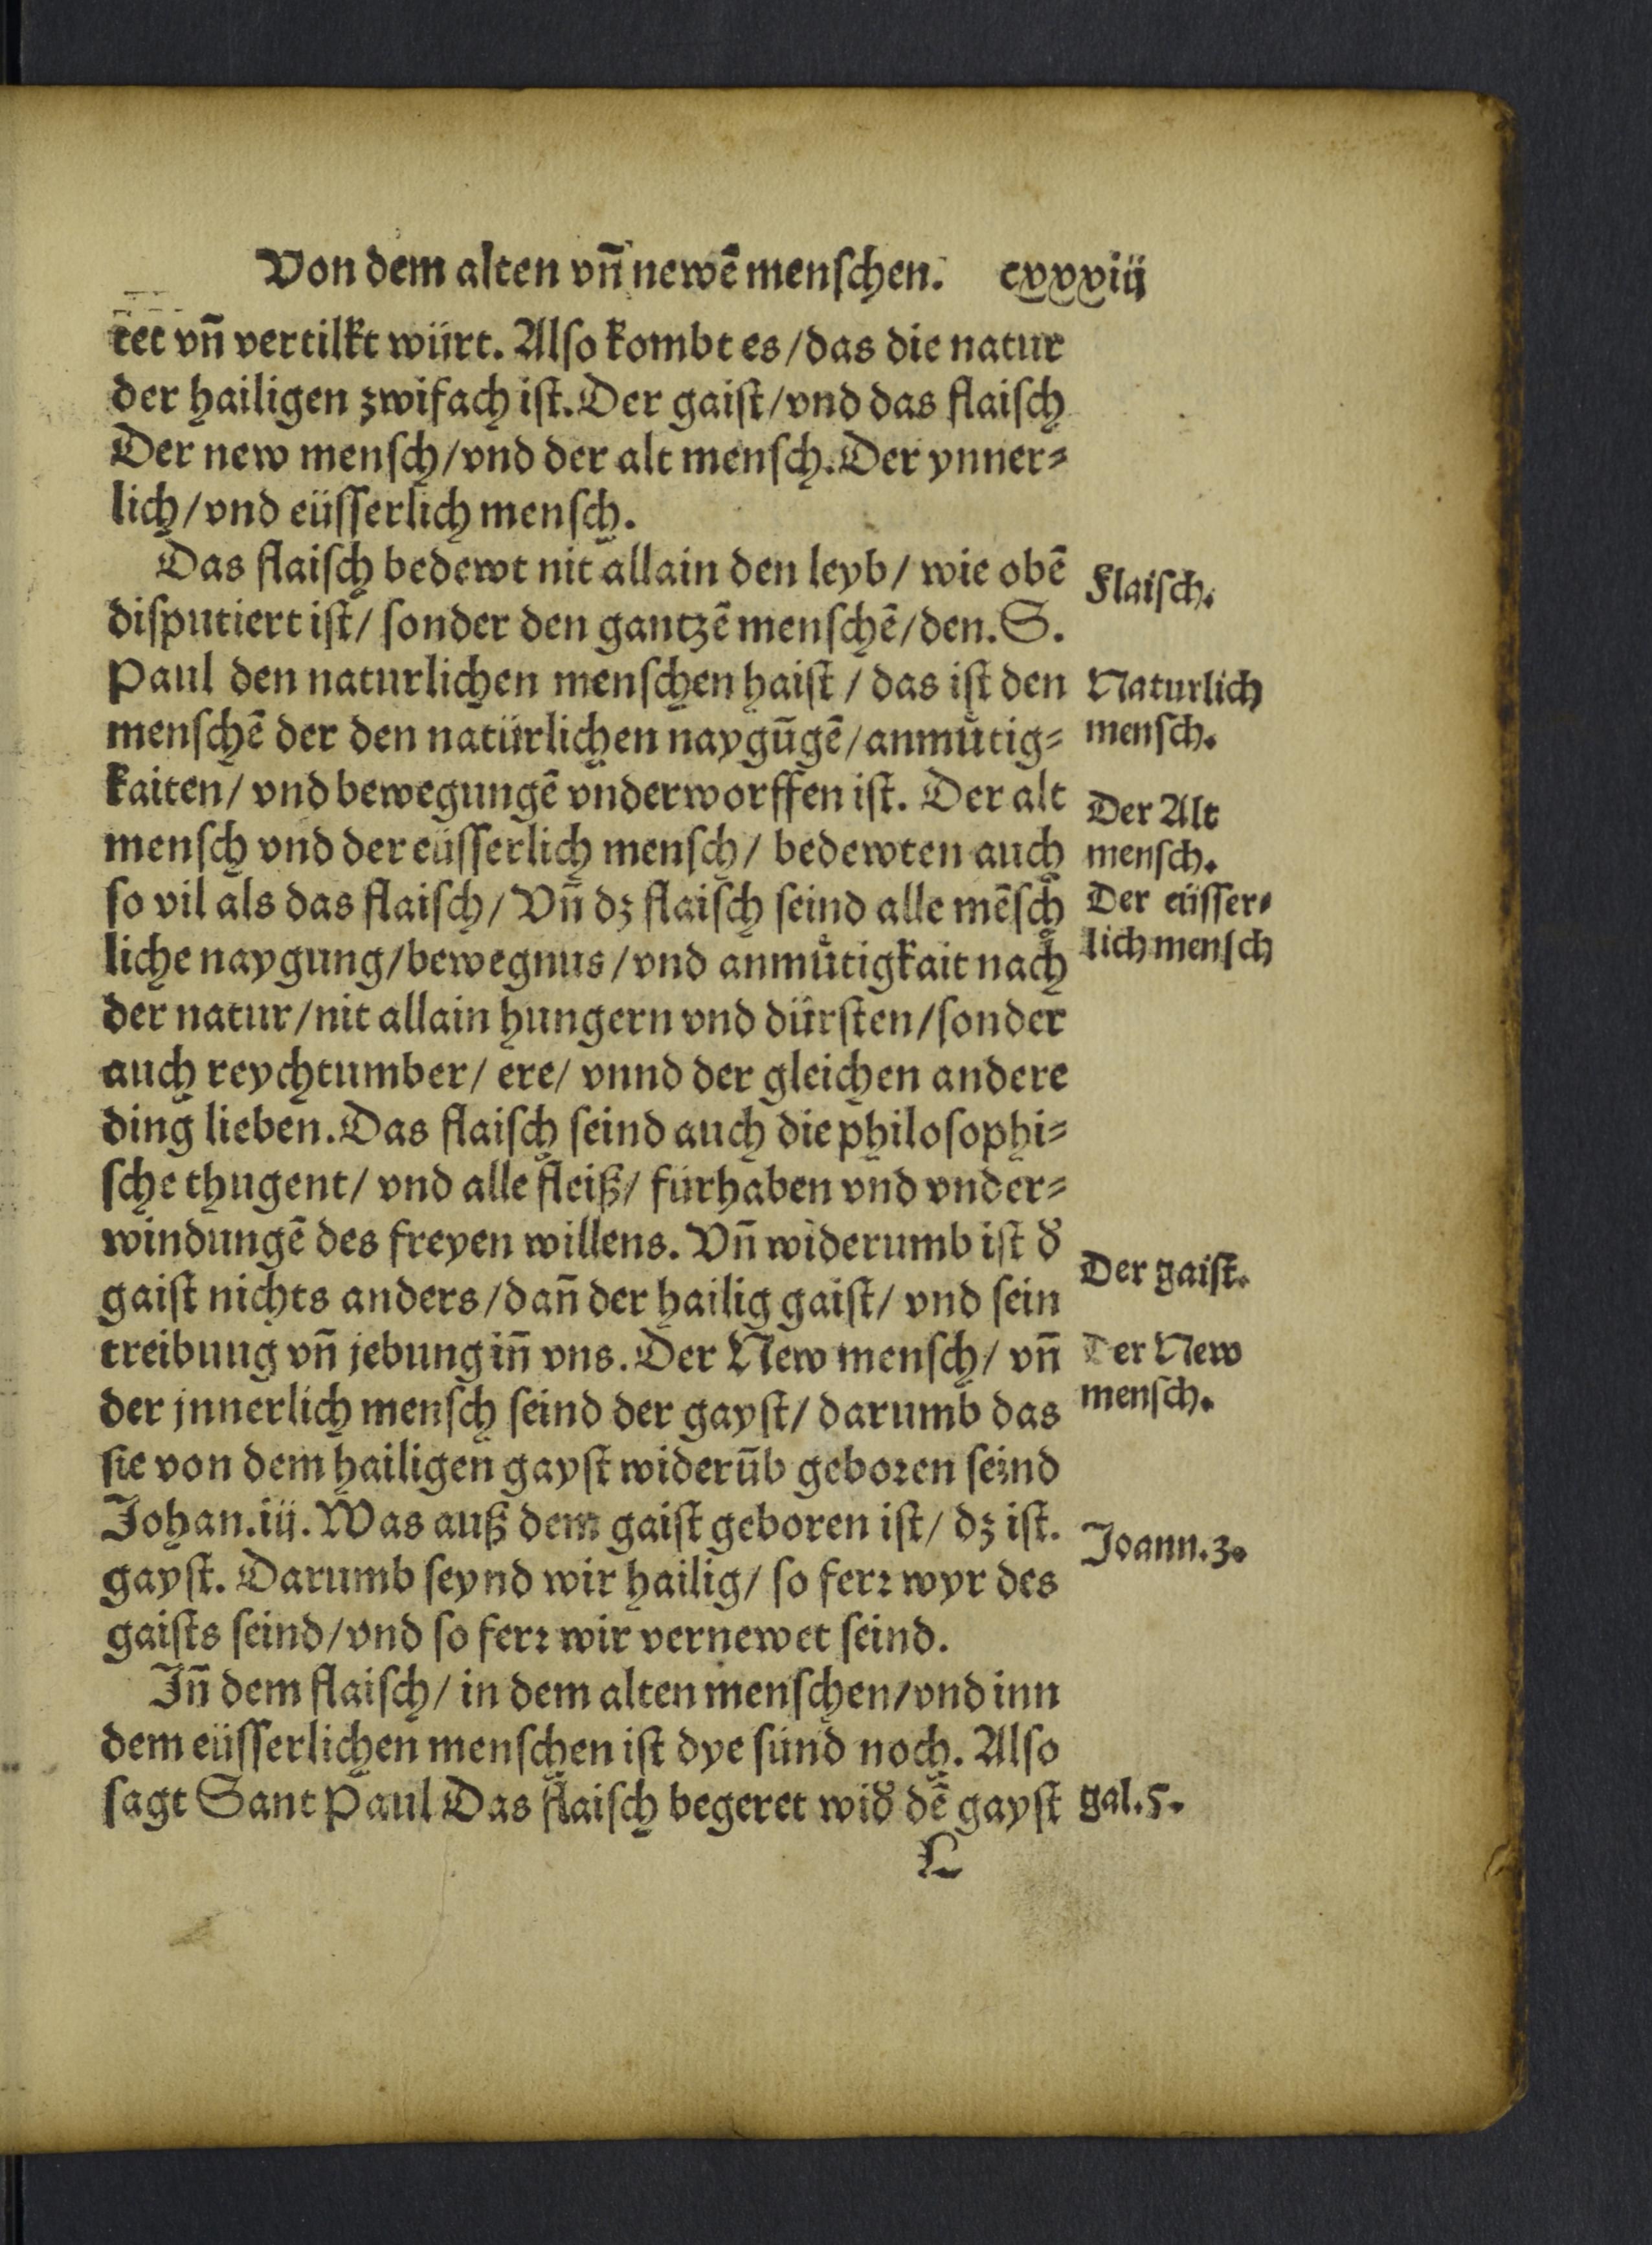 Von dem alten vñ newẽ menſchen. cxxxiij
tet vñ vertilkt würt. Alſo kombt es/das die natur
der hailigen zwifach iſt. Der gaiſt/vnd das flaiſch
Der new menſch/vnd der alt menſch. Der ynner⸗
lich/vnd eüſſerlich menſch.
Das flaiſch bedewt nit allain den leyb/ wie obẽ
Flaiſch.
diſputiert iſt/ ſonder den gantzẽ menſchẽ/den. S.
Paul den naturlichen menſchen haiſt / das iſt den
Naturlich
menſchẽ der den natürlichen naygũgẽ/anmůtig⸗
menſch.
kaiten/ vnd bewegungẽ vnderworffen iſt. Der alt
Der Alt
menſch vnd der eüſſerlich menſch/ bedewten auch
menſch.
ſo vil als das flaiſch/ Vñ dz flaiſch ſeind alle mẽſch
Der eüſſer⸗
liche naygung/bewegnus/vnd anmůtigkait nach
lich menſch
der natur/nit allain hungern vnd dürſten/ſonder
auch reychtumber/ ere/ vnnd der gleichen andere
ding lieben. Das flaiſch ſeind auch die philoſophi⸗
ſche thugent/ vnd alle fleiß/ fürhaben vnd vnder⸗
windungẽ des freyen willens. Vñ widerumb iſt d̕
Der gaiſt.
gaiſt nichts anders/dañ der hailig gaiſt/ vnd ſein
treibung vñ jebung iñ vns. Der New menſch/ vñ
Der New
der jnnerlich menſch ſeind der gayſt/ darumb das
menſch.
ſie von dem hailigen gayſt widerũb geboꝛen ſeind
Johan.iij. Was auß dem gaiſt geboren iſt/ dz iſt.
Joann.3.
gayſt. Darumb ſeynd wir hailig/ ſo ferꝛ wyr des
gaiſts ſeind/vnd ſo ferꝛ wir vernewet ſeind.
Jñ dem flaiſch/ in dem alten menſchen/vnd inn
dem eüſſerlichen menſchen iſt dye ſünd noch. Alſo
ſagt Sant Paul Das flaiſch begeret wid̕ dẽ gayſt
gal.5.
L